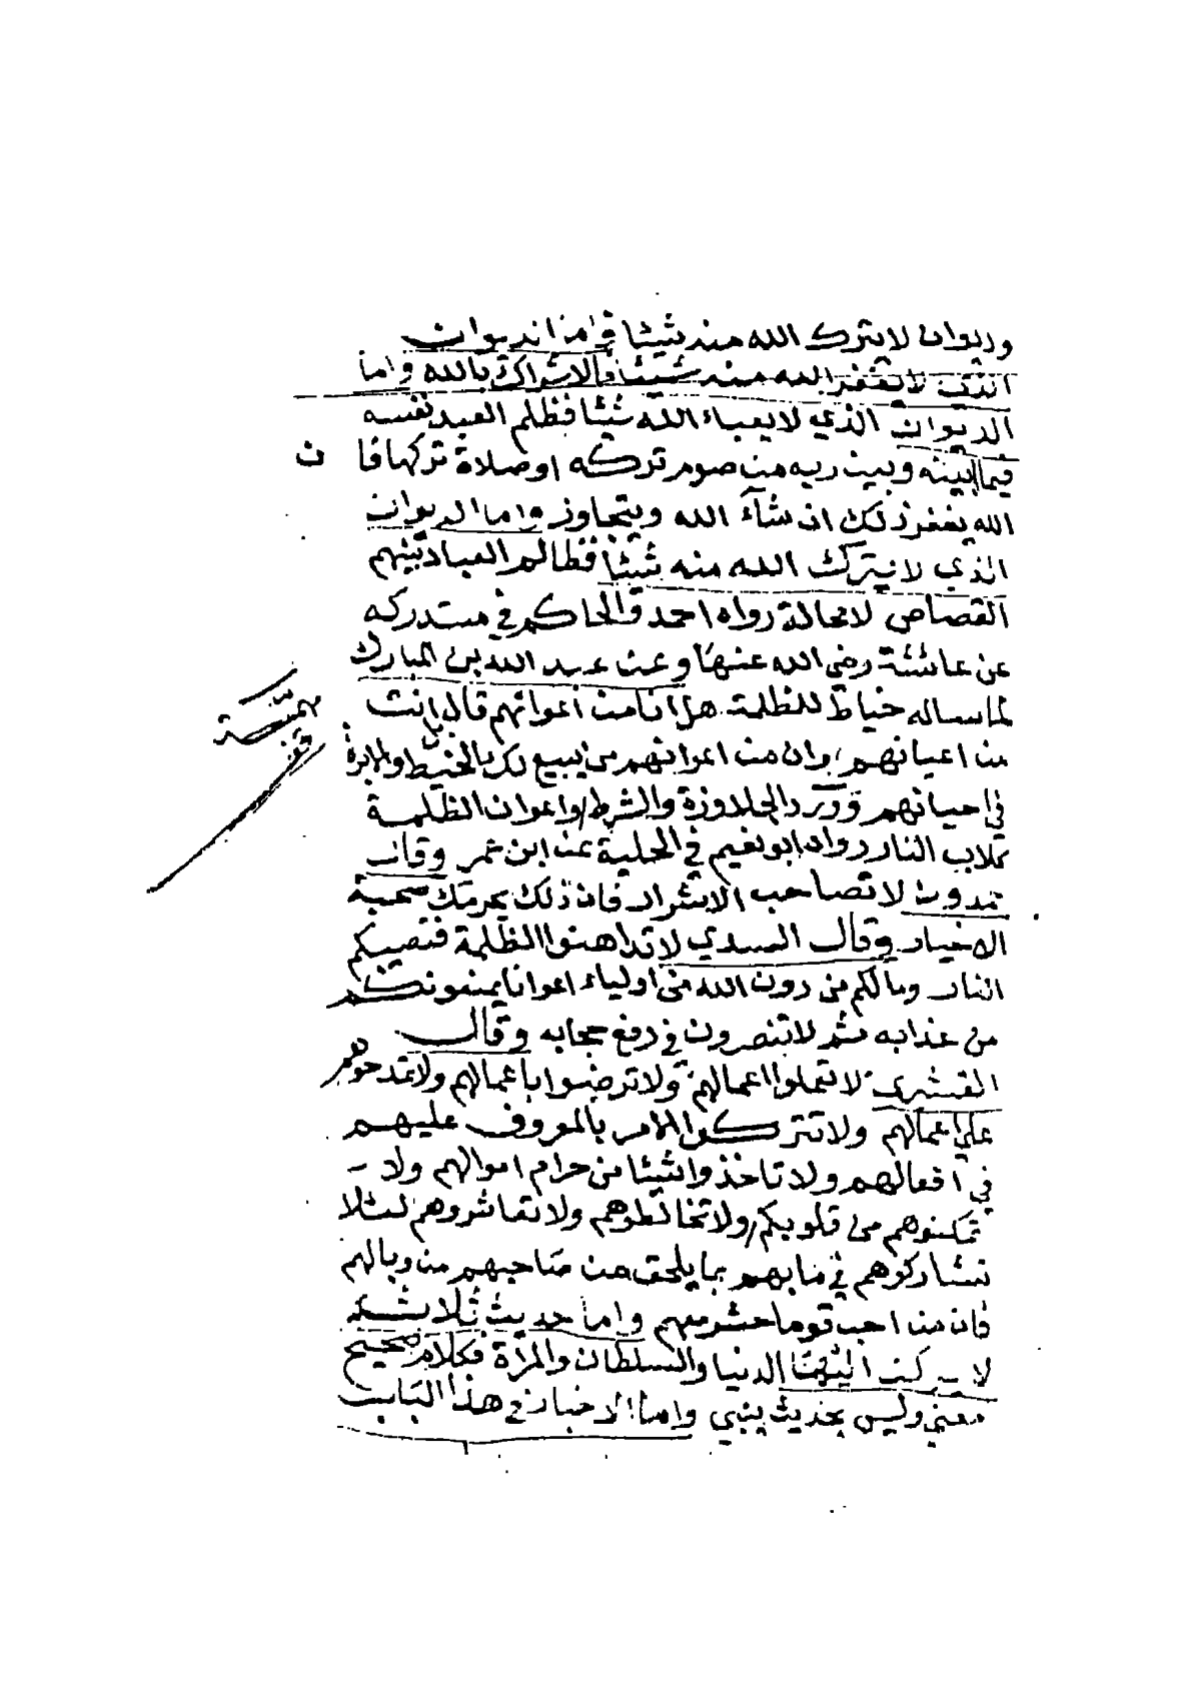 وديوان لا يترك الله منه شيئا فاما الديوان
الذي لا يغفر الله منه شيئا فالاشراك بالله واما
الديوان الذي لا يعباء الله شيئا فظلم العبد نفسه
فيما بينه وبين ربه من صوم تركه او صلاة تركها فان
الله يغفر ذلك ان شآء الله ويتجاوز واما الديوان
الذي لا يترك الله منه شيئا فظالم العباد بينهم
القصاص لا محالة رواه احمد والحاكم في مستدركه
عن عائشة رضي الله عنها وعن عبد الله بن المبارك
لما ساله خياط للظلمة هل انا من اعوانهم قال انت
من اعيانهم وان من اعوانهم من يبيع لك الخيط والابرة
في احيانهم وورد الجلاوزة والشرط واعوان الظلمة
كلاب النار رواه ابو نعيم في الحلية عن ابن عمر وقال
حمدون لا تصاحب الاشرار فان ذلك يحرمك صحبة
الاخيار وقال السدي لا تداهنوا الظلمة فتصيبكم
النار وما لكم من دون الله من اولياء اعوانا يمنعونكم
من عذابه ثم لا تنصرون في دفع حجابه وقال
القشيري لا تعملوا اعمالهم ولا ترضوا باعمالهم ولا تمدحوهم
على اعمالهم ولا تتركوا الامر بالمعروف عليهم
في افعالهم ولا تاخذوا شيئا من حرام اموالهم ولا
تمكنوهم من قلوبكم ولا تخالطوهم ولا تعاشروهم لئلا
تشاركوهم في مابهم بما يلحق من صاحبهم من وبالهم
فان من احب قوما حشر معهم واما حديث ثلاثة
لا يركن اليها الدنيا والسلطان والمرأة فكلام صحيح
معنى وليس بحديث نبي واما الاخبار في هذا الباب